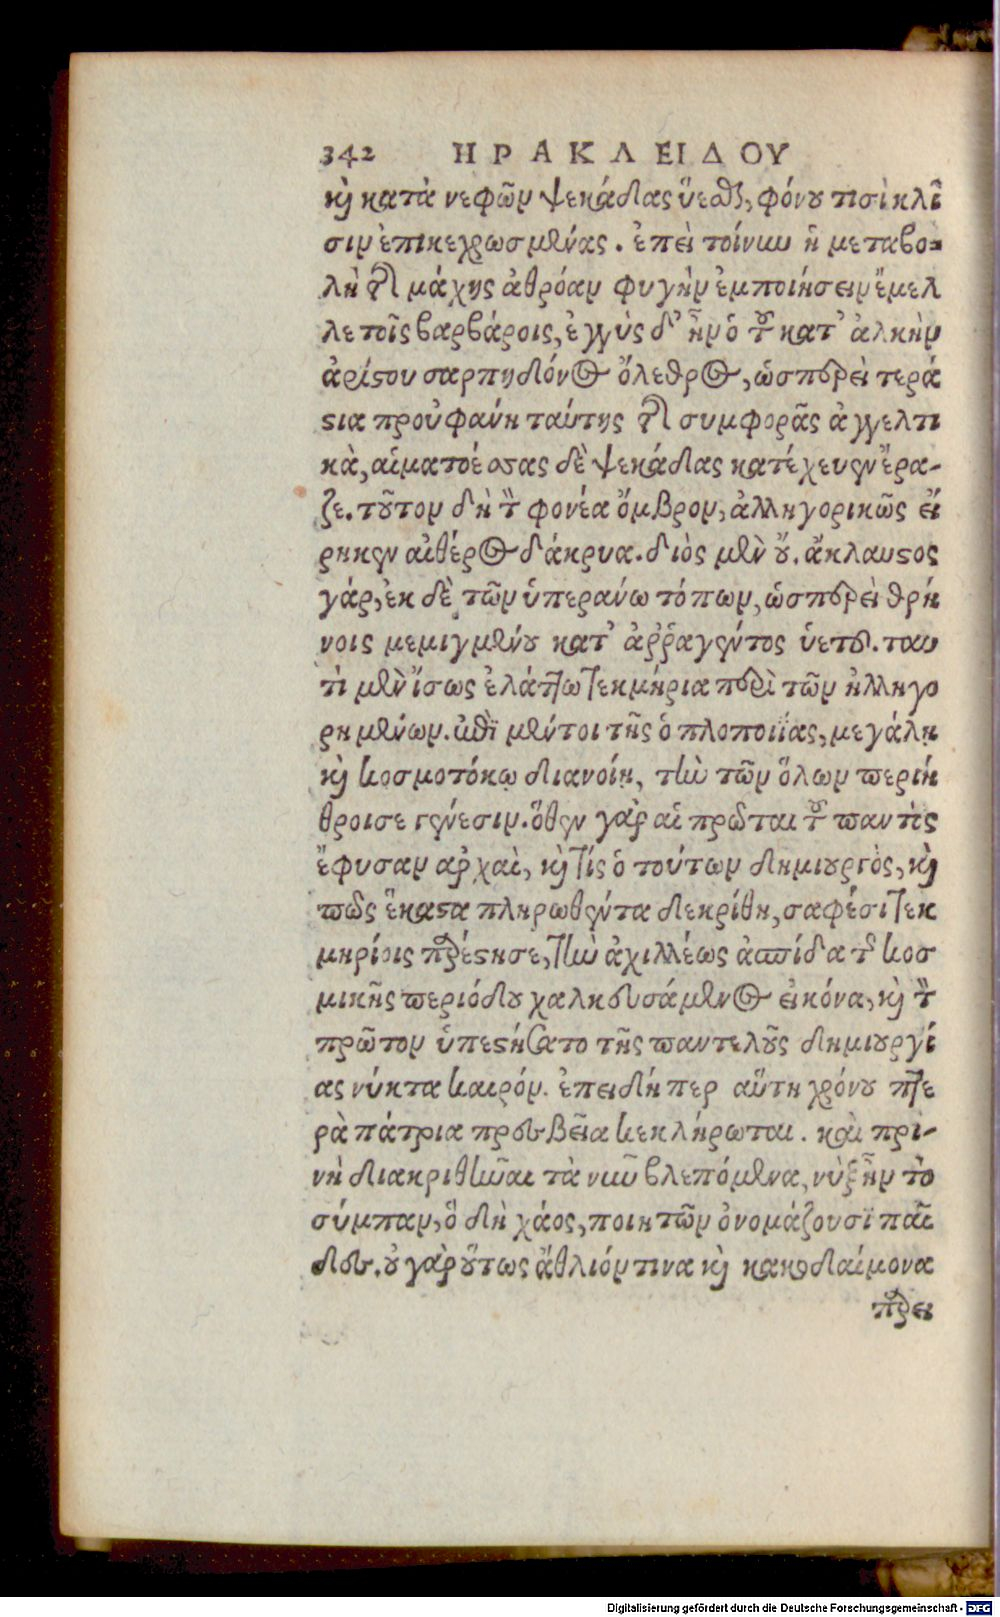 342 ΗΡΑΚΛΕΙΔΟΥ
καὶ κατὰ νεφῶν ψεκάδας ὕεσθαι, φόνου τισὶ κλί
σιν ἐπικεχρωσμένας. ἐπεὶ τοίνυν ἡ μεταβο-
λὴ τῆς μάχης ἀθρόαν φυγὴν ἐμποιήσειν ἔμελ
λε τοῖς βαρβάροις, ἐγγὺς δ' ἦν ὁ τοῦ κατ' ἀλκὴν
ἀρίστου σαρπηδόνος ὄλεθρος, ὡσπερεὶ τερά
στια προὐφάνη ταύτης τῆς συμφορᾶς ἀγγελτι
κὰ, αἱματοέσσας δὲ ψεκάδας κατέχευεν ἔρα-
ζε. τοῦτον δὴ τὸν φονέα ὄμβρον, ἀλληγορικῶς εἴ
ρηκεν αἰθέρος δάκρυα. διὸς μὲν οὔ. ἄκλαυστος
γάρ, ἐκ δὲ τῶν ὑπεράνω τόπων, ὡσπερεὶ θρή
νοις μεμιγμένου καταρραγέντος ὑετοῦ. ταυ
τὶ μὲν ἴσως ἐλάττω τεκμήρια περὶ τῶν ἠλληγο
ρημένων. ἐπὶ μέντοι τῆς ὁπλοποιΐας, μεγάλῃ
καὶ κοσμοτόκῳ διανοίῃ, τὴν τῶν ὅλων περιή
θροισε γένεσιν. ὅθεν γὰρ αἱ πρῶται τοῦ παντὸς
ἔφυσαν ἀρχαὶ, καὶ τίς ὁ τούτων δημιουργὸς, καὶ
πῶς ἕκαστα πληρωθέντα διεκρίθη, σαφέσι τεκ
μηρίοις παρέστησε, τὴν ἀχιλλέως ἀσπίδα τῆς κοσ
μικῆς περιόδου χαλκευσάμενος εἰκόνα, καὶ τὸν
πρῶτον ὑπεστήσατο τῆς παντελοῦς δημιουργί
ας νύκτα καιρόν. ἐπειδήπερ αὕτη χρόνου προτε
ρα πάτρια πρεσβεῖα κεκλήρωται. καὶ πρι-
νὴ διακριθῆναι τὰ νῦν βλεπόμενα, νὺξ ἦν τὸ
σύμπαν, ὃ δὴ χάος, ποιητῶν ὀνομάζουσϊ παῖ
δες. οὐ γὰρ οὕτως ἄθλιόν τινα καὶ κακοδαίμονα
παρει